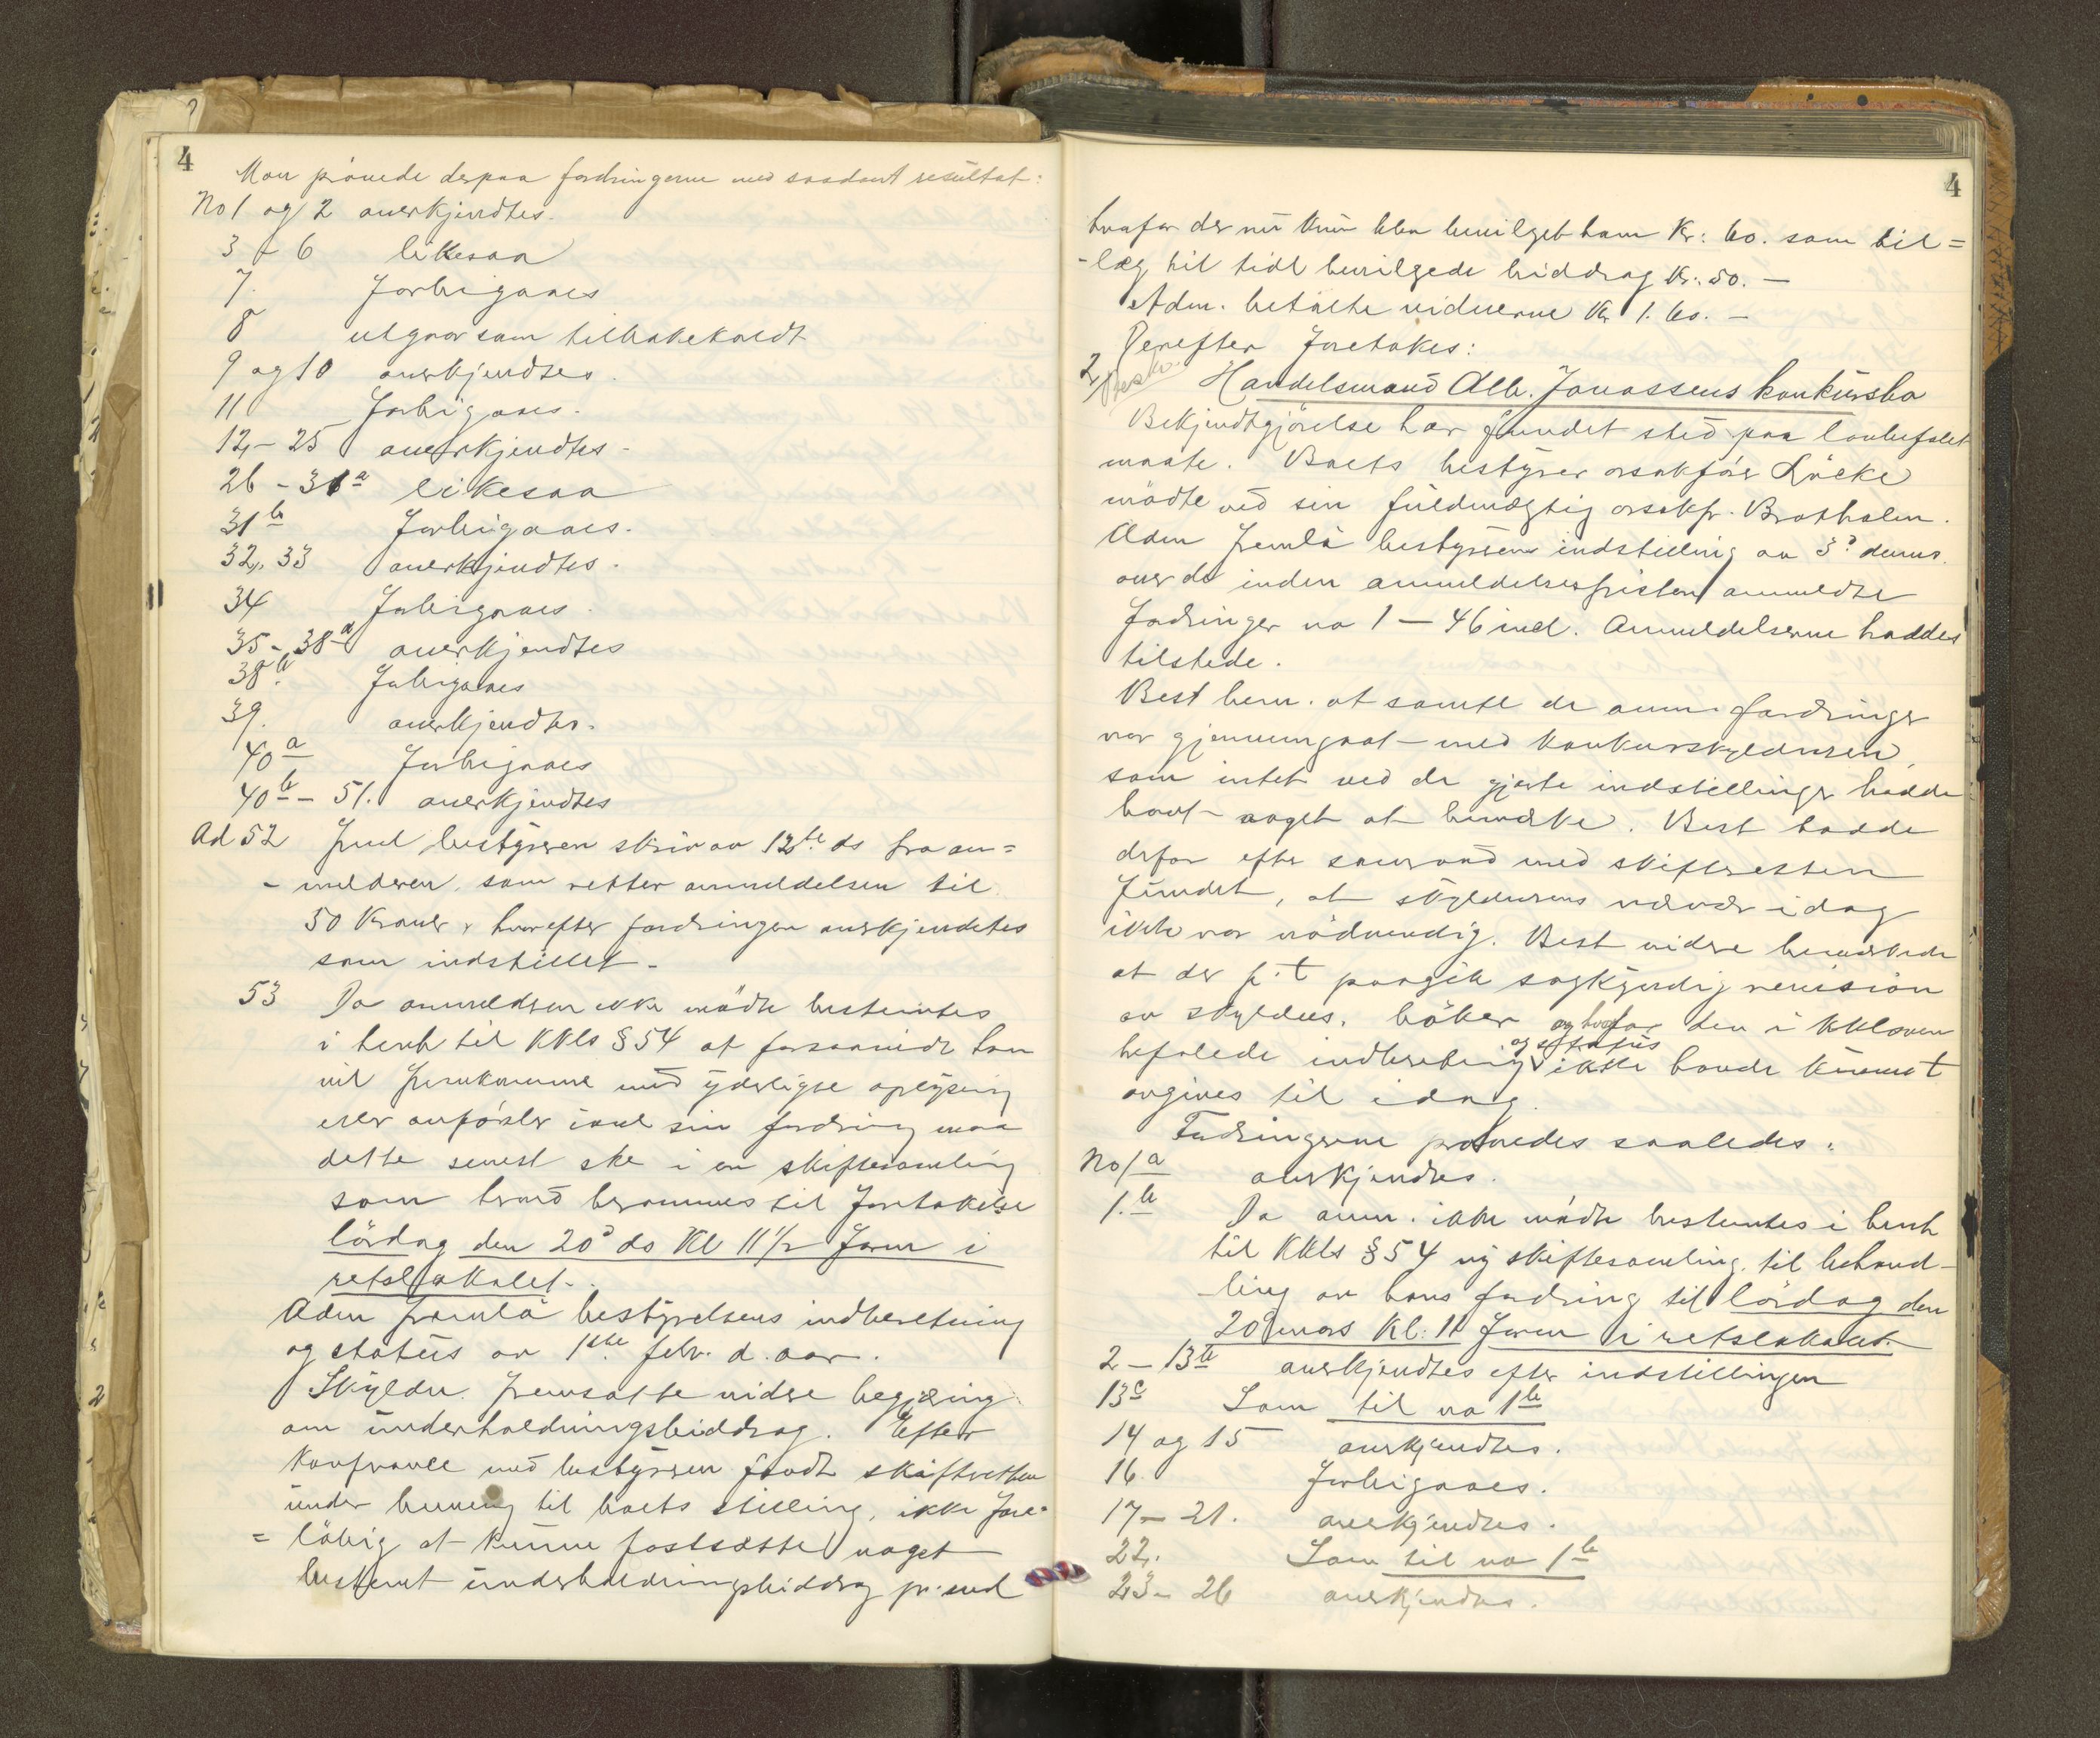 4
Man prövede derpaa fordringerne med saadant resultat:
No 1 og 2 anerkjendtes.
3 - 6 likesaa
7. Forbigaaes
8 utgaar som tilbakekaldt
9 og 10 anerkjendtes.
11 Forbigaaes.
12 - 25 anerkjendtes -
26 - 31a likesaa
31b Forbigaaes.
32, 33 anerkjendtes.
34 Forbigaaes.
35 - 38a anerkjendtes
38b Forbigaaes
39. anerkjendtes.
40a Forbigaaes
40b - 51. anerkjendtes
Ad 52 Freml bestyreren skriv av 12te ds fra an=
- melderen, som retter anmeldelsen til
50 Kroner, hvorefter fordringen anerkjendetes
som indstillet -
53 Da anmelderen ikke mödte bestemtes
i henh til KKls § 54 at forsaavidt han
vil fremkomme med yderligere oplysning
eller anförsler ianl sin fordring maa
dette senest ske i en skiftesamling
som herved berammes til Foretakelse
lördag den 20d ds Kl 11 1/2 Form i
retslokalet.
Adm fremla bestyrelsens indberetning
og status av 1ste febr. d. aar.
Skyldn. fremsatte videre begjæring
om underholdningsbidrag. Efter
Konferance med bestyreren fandt skifteretten
under hensyn til boets stilling, ikke fore=
= löbig at kunne fastsætte noget
bestemt underholdningsbidrag pr. md
4
hvorfor der nu kun blev bevilget ham Kr: 60. som til=
- læg til tidl bevilgede biddrag Kr: 50. -
Adm. betalte vidnerne Kr 1.60. -
Derefter Foretokes:
2/ Handelsmand Alb. Jonassens konkursbo
Bekjendtgjörelse har fundet sted paa lovbefalet
maate. Boets bestyrer orsakför Lücke
mödte ved sin fuldmægtig orsakf. Bratholm.
Adm fremla bestyrerens indstilling av 3d dennes
over de inden anmeldelsesfristen anmeldte
Fordringer no 1 - 46 incl. Anmeldelserne haddes
tilstede.
Best bem. at samtl de anm. fordringer
var gjennemgaat med konkursskyldneren,
som intet ved de gjorte indstillinger hadde
havt noget at bemerke. Best hadde
derfor efter samraad med skifteretten
fundet, at skyldnerens nærvær idag
ikke var nödvendig. Best videre bemerkede
at der p.t paagik sagkyndig revision
av skyldns. böker og hvorfor den i KKloven
befalede indberetning og status ikke havde kunnet
avgives til idag.
Fordringerne prövedes saaledes:
No 1a anerkjendtes.
1.b Da anm. ikke mödte bestemtes i henh
til KKls § 54 ny skiftesamling til behand-
ling av hans fordring til lördag den
20d mars Kl: 11 Form i retslokalet.
2 - 13b anerkjendtes efter indstillingen
13c Som til no 1b
14 og 15 anerkjendtes.
16. Forbigaaes.
17 - 21. anerkjendtes.
22. Som til no 1b
23 - 26 anerkjendtes.